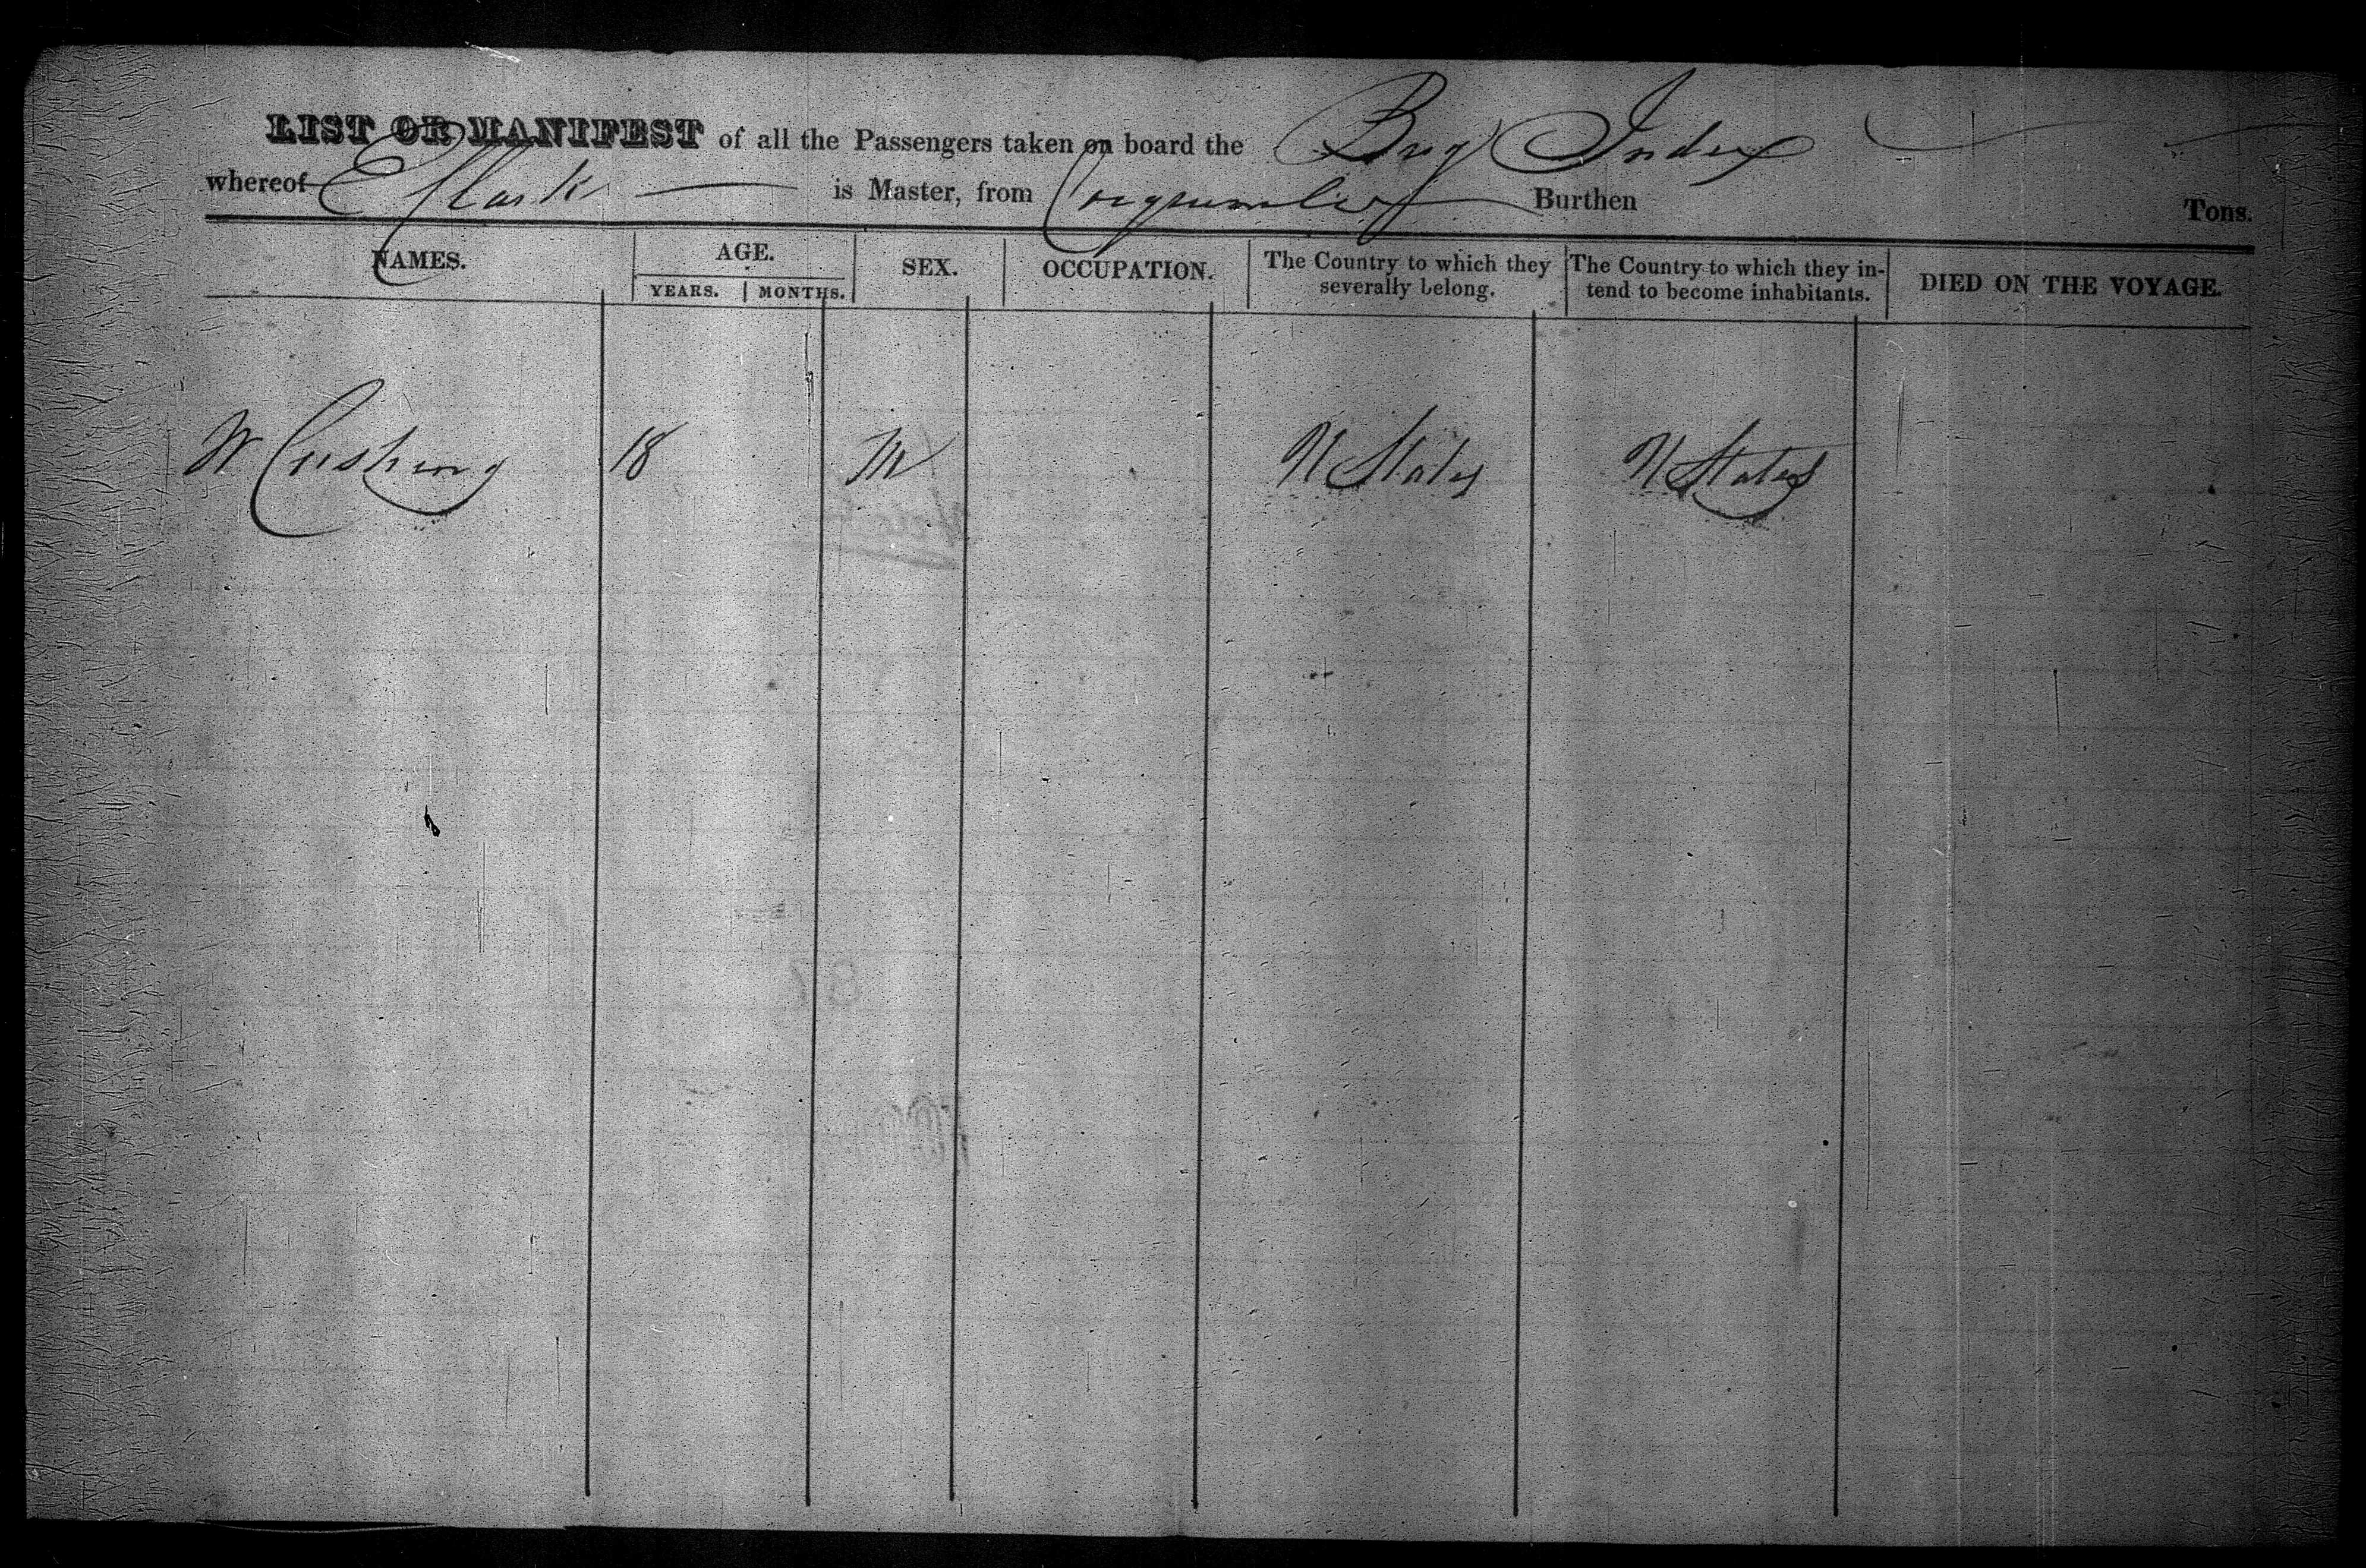 LIST OR MANIFEST of all the Passengers taken on board the Brig Index
whereof E Clark is Master, from Burthen Tons.
NAMES. AGE. YEARS. MONTHS. SEX. OCCUPATION. The Country to which they severally belong. The Country to which they intend to become inhabitants. DIED ON THE VOYAGE.
W Cushing 18 M U States U States